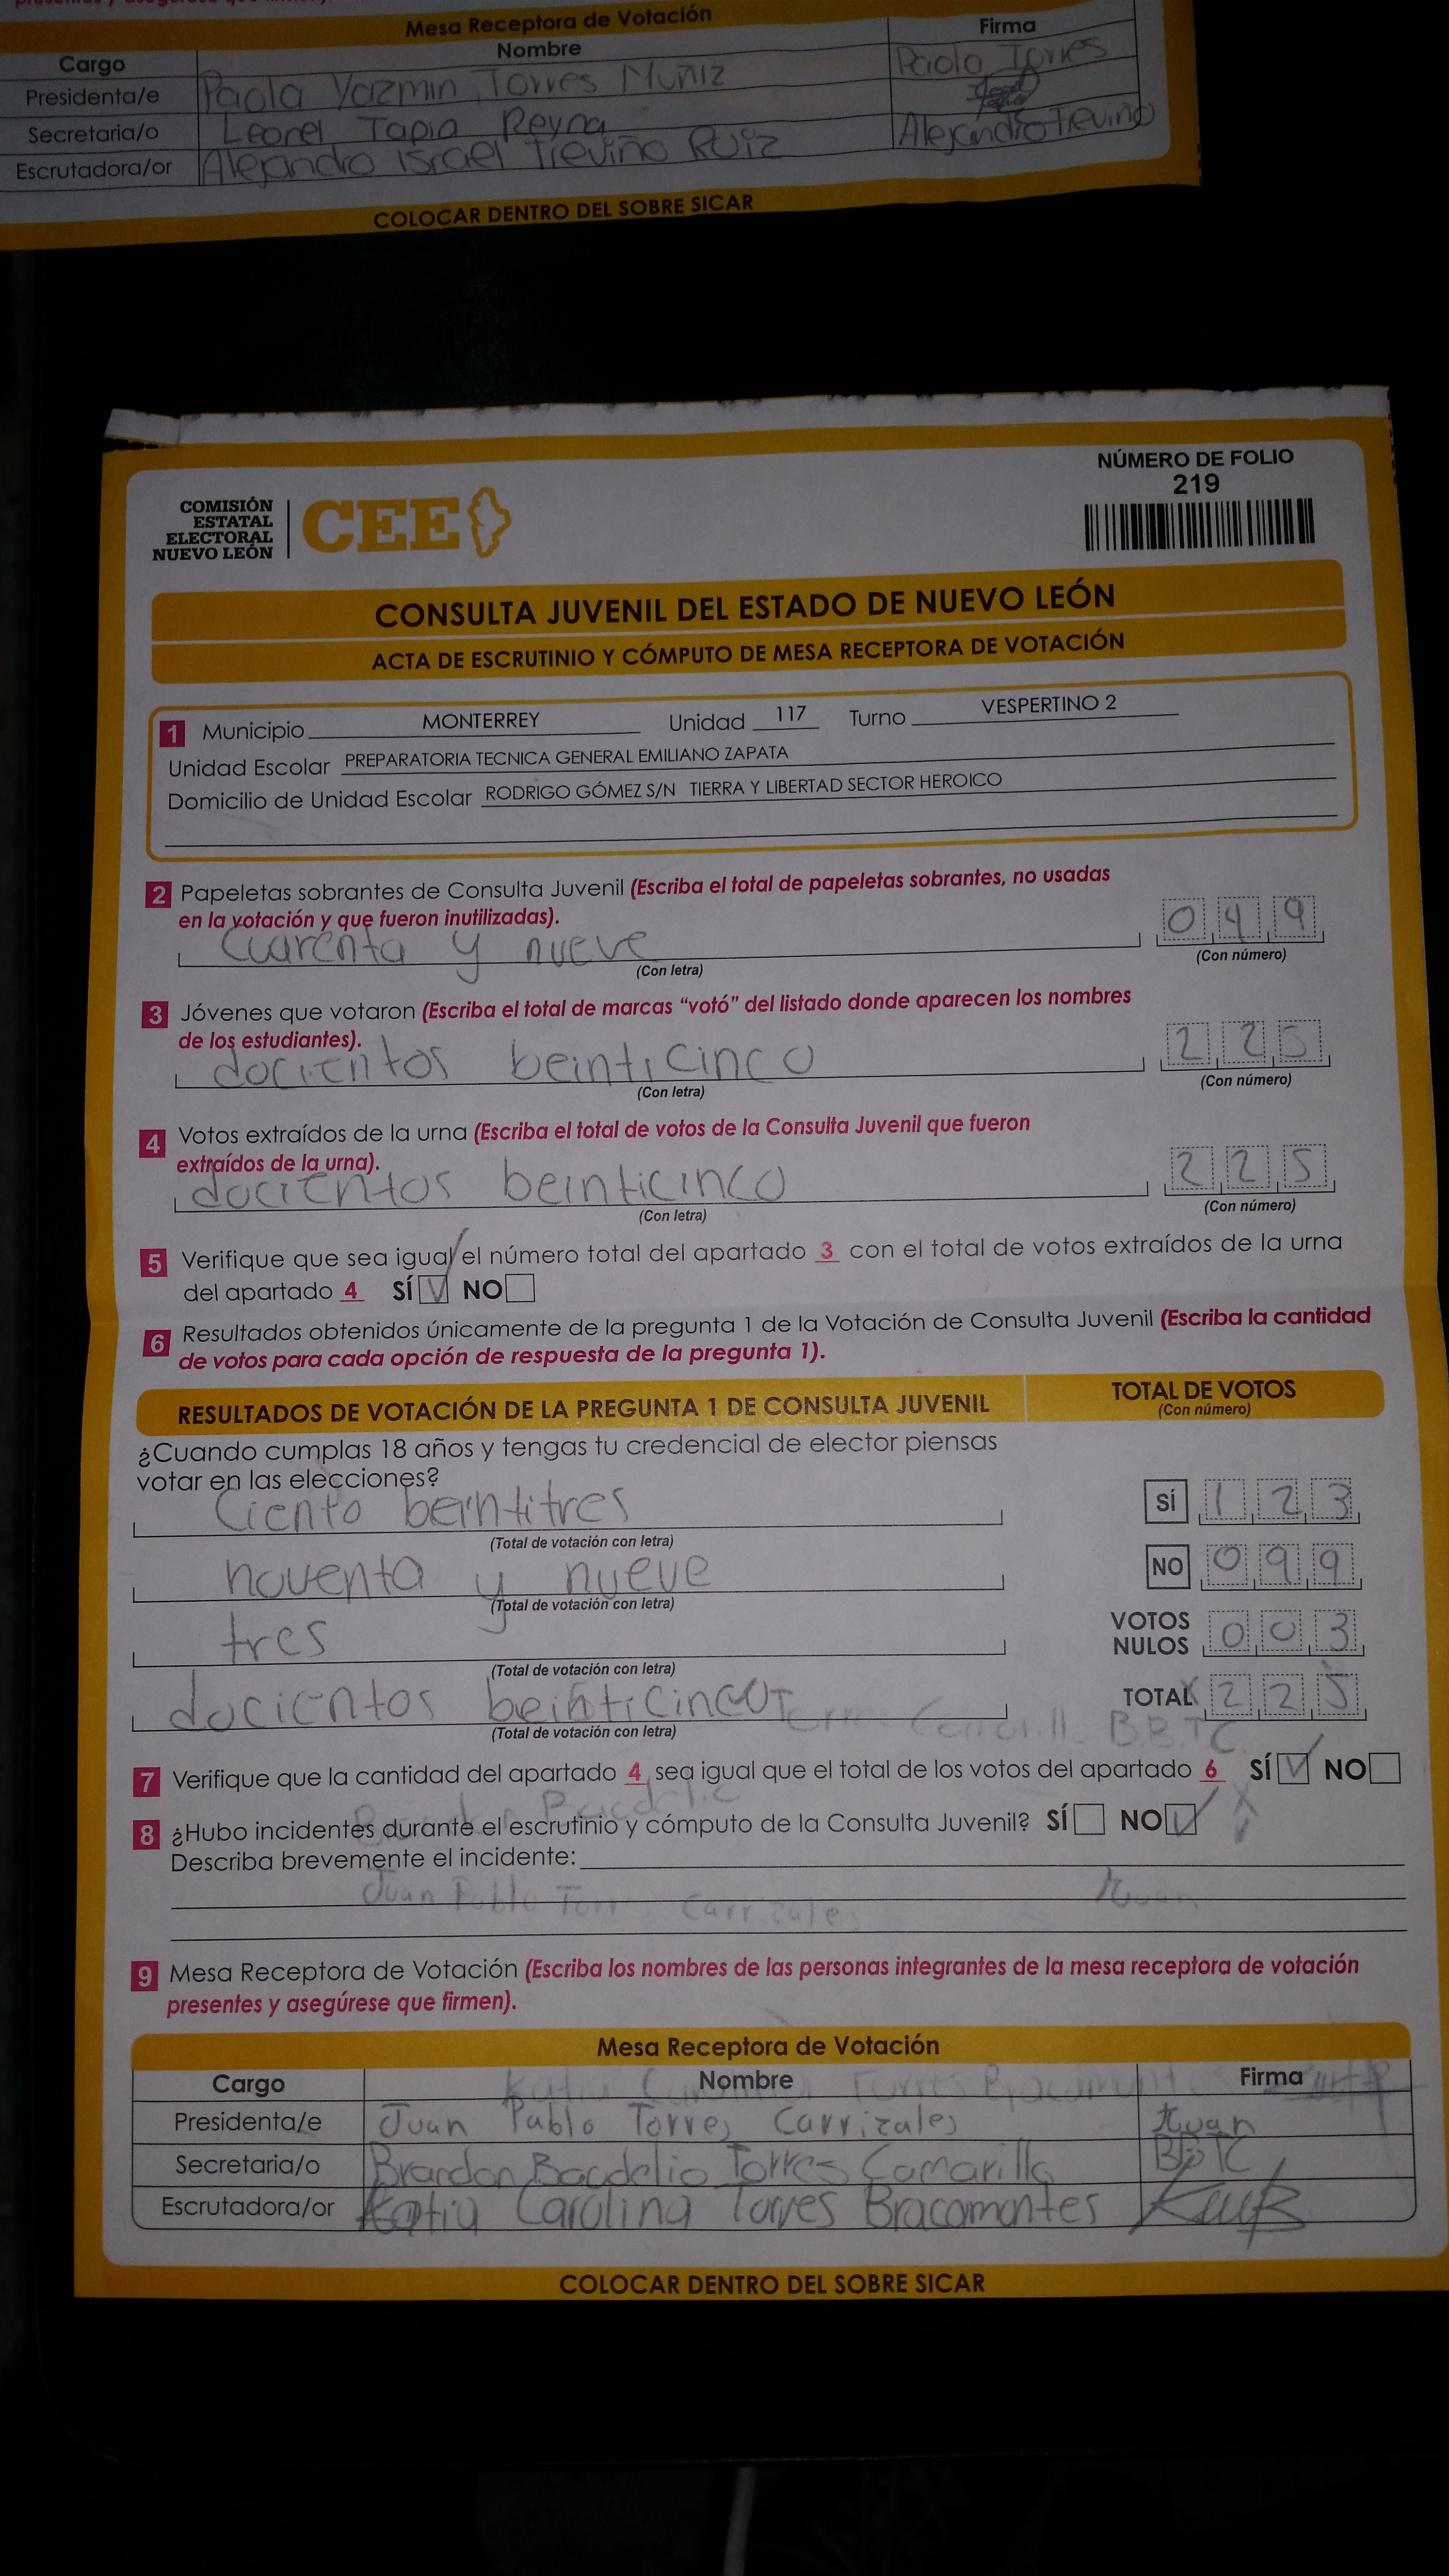 Mesa Receptora de Votación
Cargo Nombre Firma
Presidenta/e Paola Yazmin Torres Muñiz Paola Torres
Secretaria/o Leonel Tapia Reyna
Escrutadora/or Alejandro Israel Treviño Ruiz Alejandro Treviño
COLOCAR DENTRO DEL SOBRE SICAR
NÚMERO DE FOLIO
219
COMISIÓN
ESTATAL
ELECTORAL
NUEVO LEÓN
CEE
CONSULTA JUVENIL DEL ESTADO DE NUEVO LEÓN
ACTA DE ESCRUTINIO Y CÓMPUTO DE MESA RECEPTORA DE VOTACIÓN
1 Municipio MONTERREY Unidad 117 Turno VESPERTINO 2
Unidad Escolar PREPARATORIA TECNICA GENERAL EMILIANO ZAPATA
Domicilio de Unidad Escolar RODRIGO GÓMEZ S/N TIERRA Y LIBERTAD SECTOR HEROICO
2 Papeletas sobrantes de Consulta Juvenil (Escriba el total de papeletas sobrantes, no usadas
en la votación y que fueron inutilizadas).
cuarenta y nueve 049
(Con letra) (Con número)
3 Jóvenes que votaron (Escriba el total de marcas “votó” del listado donde aparecen los nombres
de los estudiantes).
docientos beinticinco 225
(Con letra) (Con número)
4 Votos extraídos de la urna (Escriba el total de votos de la Consulta Juvenil que fueron
extraídos de la urna).
docientos beinticinco 225
(Con letra) (Con número)
5 Verifique que sea igual el número total del apartado 3 con el total de votos extraídos de la urna
del apartado 4 SÍ NO
6 Resultados obtenidos únicamente de la pregunta 1 de la Votación de Consulta Juvenil (Escriba la cantidad
de votos para cada opción de respuesta de la pregunta 1).
RESULTADOS DE VOTACIÓN DE LA PREGUNTA 1 DE CONSULTA JUVENIL TOTAL DE VOTOS
(Con número)
¿Cuando cumplas 18 años y tengas tu credencial de elector piensas
votar en las elecciones?
Ciento beintitres SÍ 123
(Total de votación con letra)
noventa y nueve NO 099
(Total de votación con letra)
tres VOTOS NULOS 003
(Total de votación con letra)
docientos beinticinco TOTAL 225
(Total de votación con letra)
B.B.T.C
7 Verifique que la cantidad del apartado 4 sea igual que el total de los votos del apartado 6 SÍ NO
8 ¿Hubo incidentes durante el escrutinio y cómputo de la Consulta Juvenil? SÍ NO
Describa brevemente el incidente:
Juan Pablo Torres Carrizales Juan
9 Mesa Receptora de Votación (Escriba los nombres de las personas integrantes de la mesa receptora de votación
presentes y asegúrese que firmen).
Mesa Receptora de Votación
Cargo Nombre Firma
Presidenta/e Juan Pablo Torres Carrizales Juan
Secretaria/o Brandon Baudelio Torres Camarillo BBTC
Escrutadora/or Katia Carolina Torres Bracamontes
COLOCAR DENTRO DEL SOBRE SICAR